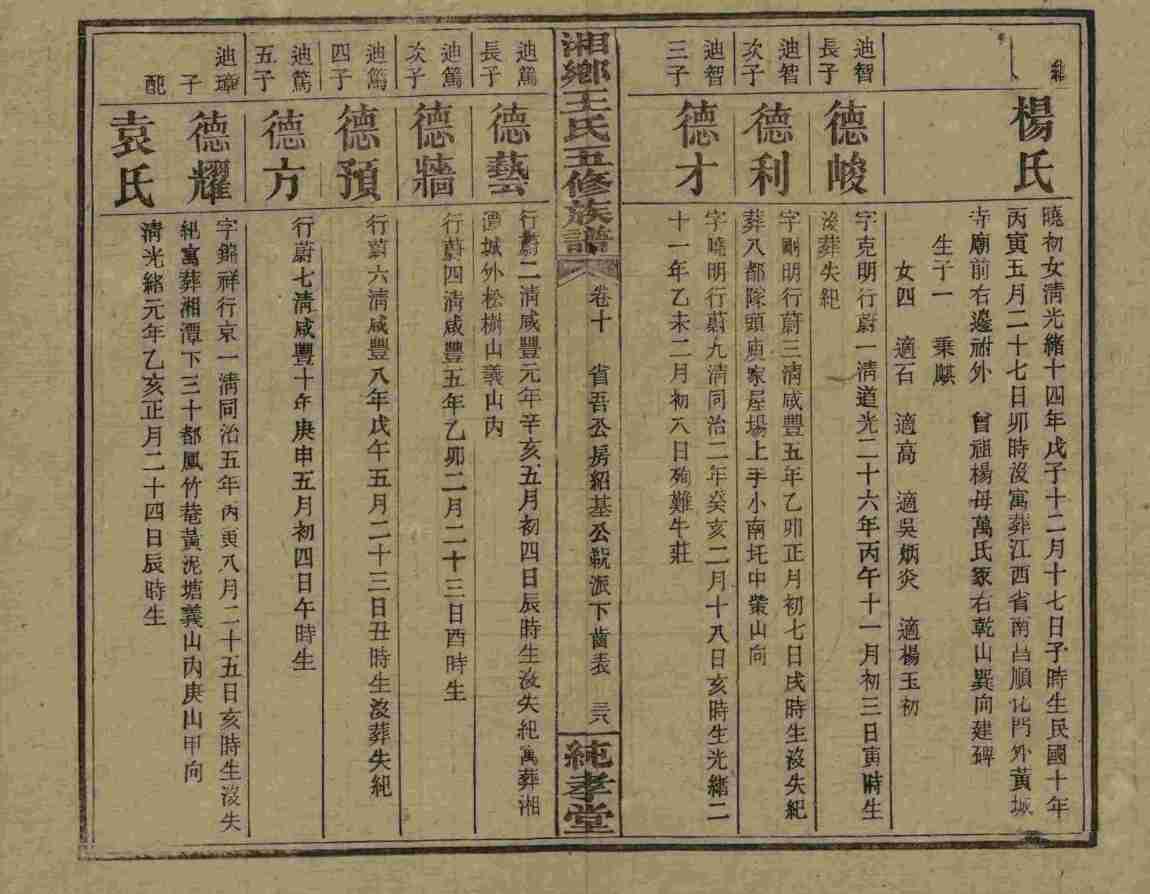 繼
楊氏
曉初女淸光緒十四年戊子十二月十七日子時生民國十年
丙寅五月二十七日卯時沒寓葬江西省南昌順化門外黃城
寺廟前右邊祔外 曾祖楊母萬氏冢右乾山巽向建碑
生子一 乘麒
女四 適石 適高 適吳炳炎 適楊玉初
迪智
長子
德峻
字克明行蔚一淸道光二十六年丙午十一月初三日寅時生
沒葬失紀
迪智
次子
德利
字剛明行蔚三淸咸豐五年乙卯正月初七日戌時生沒失紀
葬八都隊頭庾家屋場上手小南圫中棠山向
迪智
三子
德才
字曉明行蔚九淸同治二年癸亥二月十八日亥時生光緒二
十一年乙未二月初八日殉難牛莊
湘鄉王氏五修族譜
卷十 省吾公房紹基公毅派下齒表 三八
純孝堂
迪篤
長子
德藝
行蔚二淸咸豐元年辛亥五月初四日辰時生沒失紀寓葬湘
潭城外松樹山義山內
迪篤
次子
德牆
行蔚四淸咸豐五年乙卯二月二十三日酉時生
迪篤
四子
德預
行蔚六淸咸豐八年戊午五月二十三日丑時生沒葬失紀
迪篤
五子
德方
行蔚七淸咸豐十年庚申五月初四日午時生
迪璋
子
德耀
字錦祥行京一淸同治五年丙寅八月二十五日亥時生沒失
紀寓葬湘潭下三十都鳳竹菴黃泥塘義山內庚山甲向
配
袁氏
淸光緒元年乙亥正月二十四日辰時生